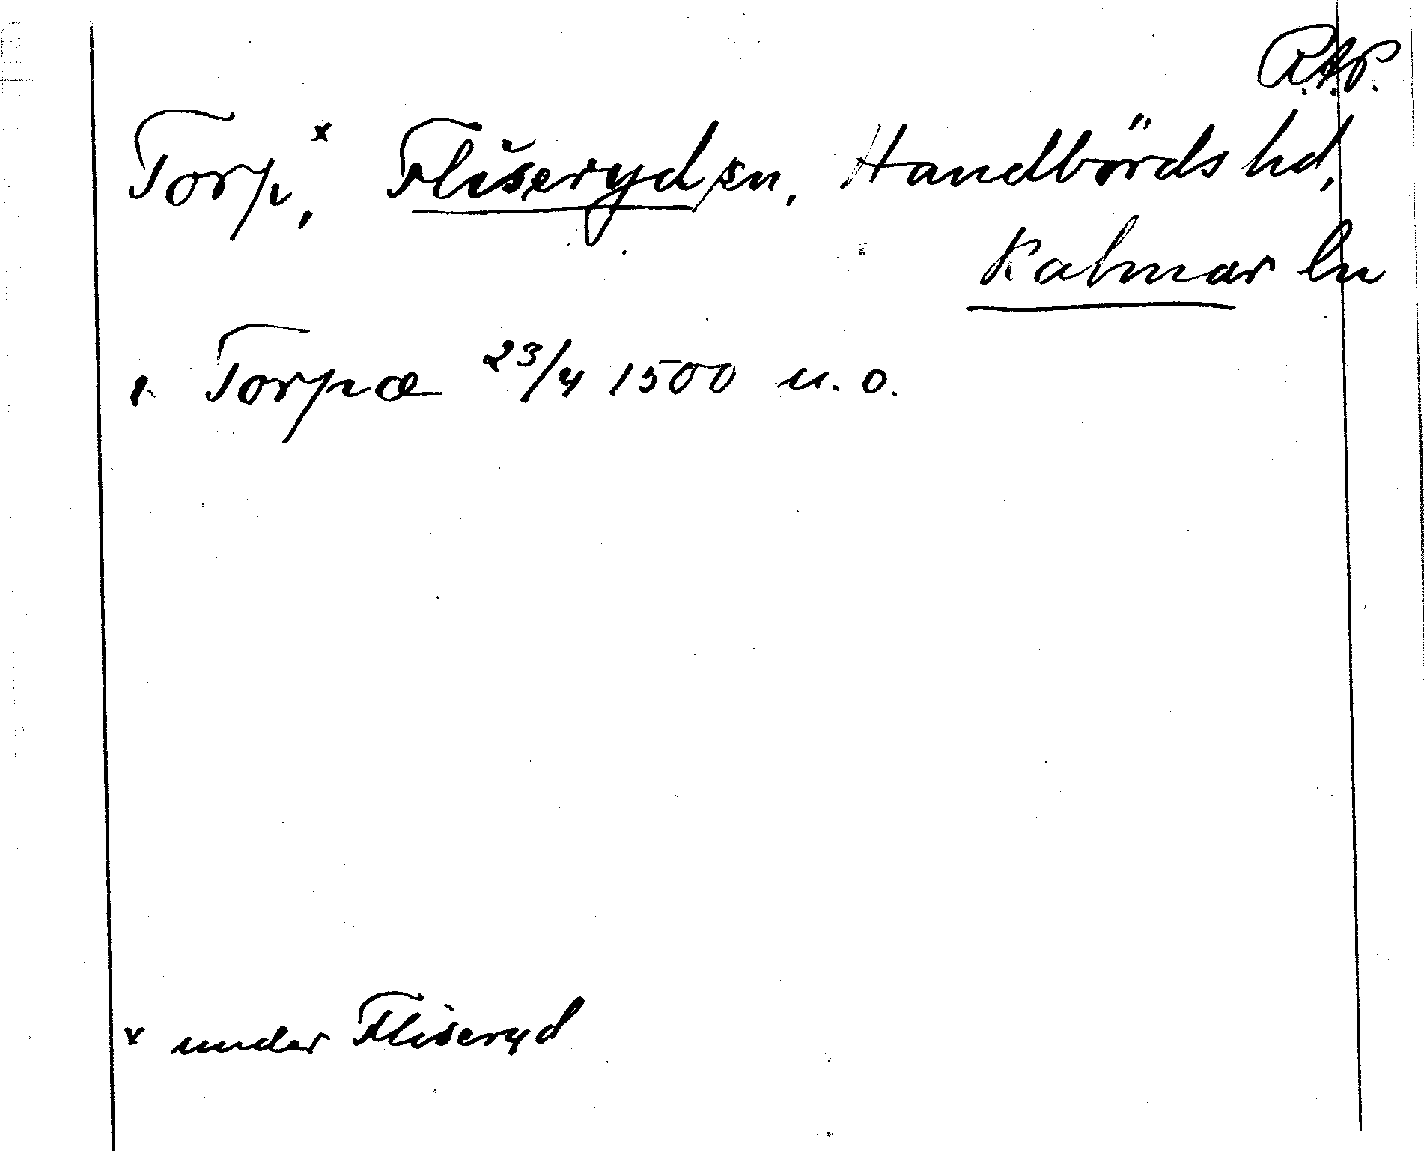 R.A.P.
Torp,ˣ Fliseryd sn, Handbörds hd,
Kalmar ln
i Torpæ 23/4 1500 u. o.
x under Fliseryd